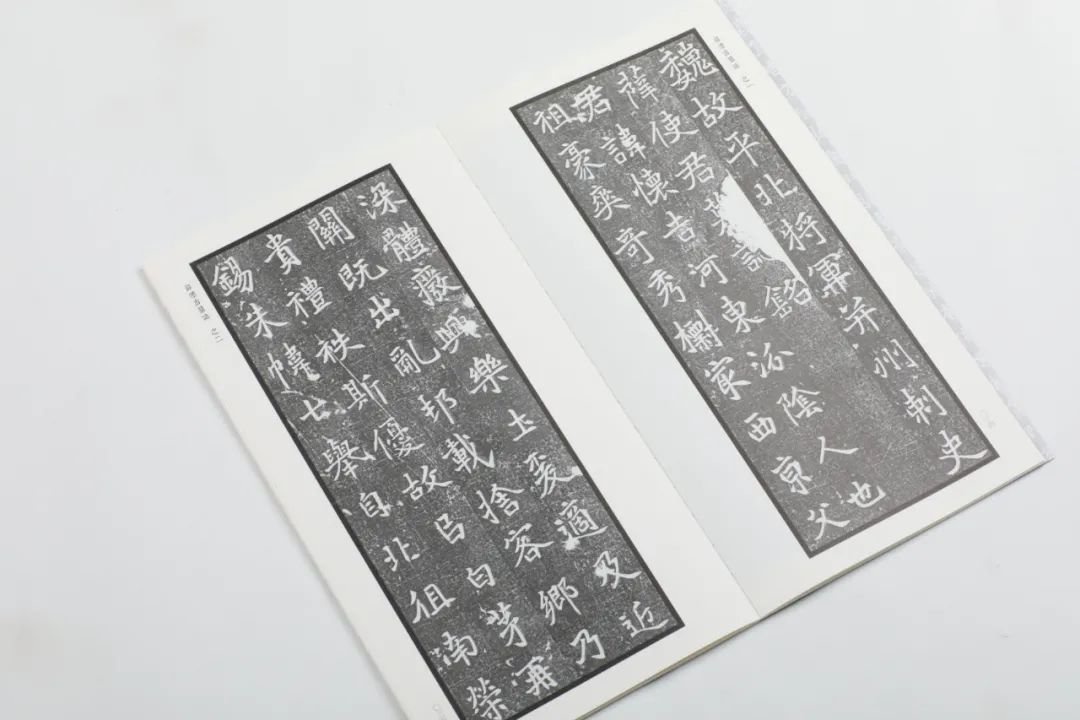 魏故平北將軍并州刺史
薛使君墓誌銘
君諱懷吉河東汾陰人也
祖豪爽奇秀家西京父
深體廢興樂土爰適及近
關既出亂邦載捨客鄉乃
貴禮袟斯優故呂白茅再
錫朱幃七舉自北徂南榮